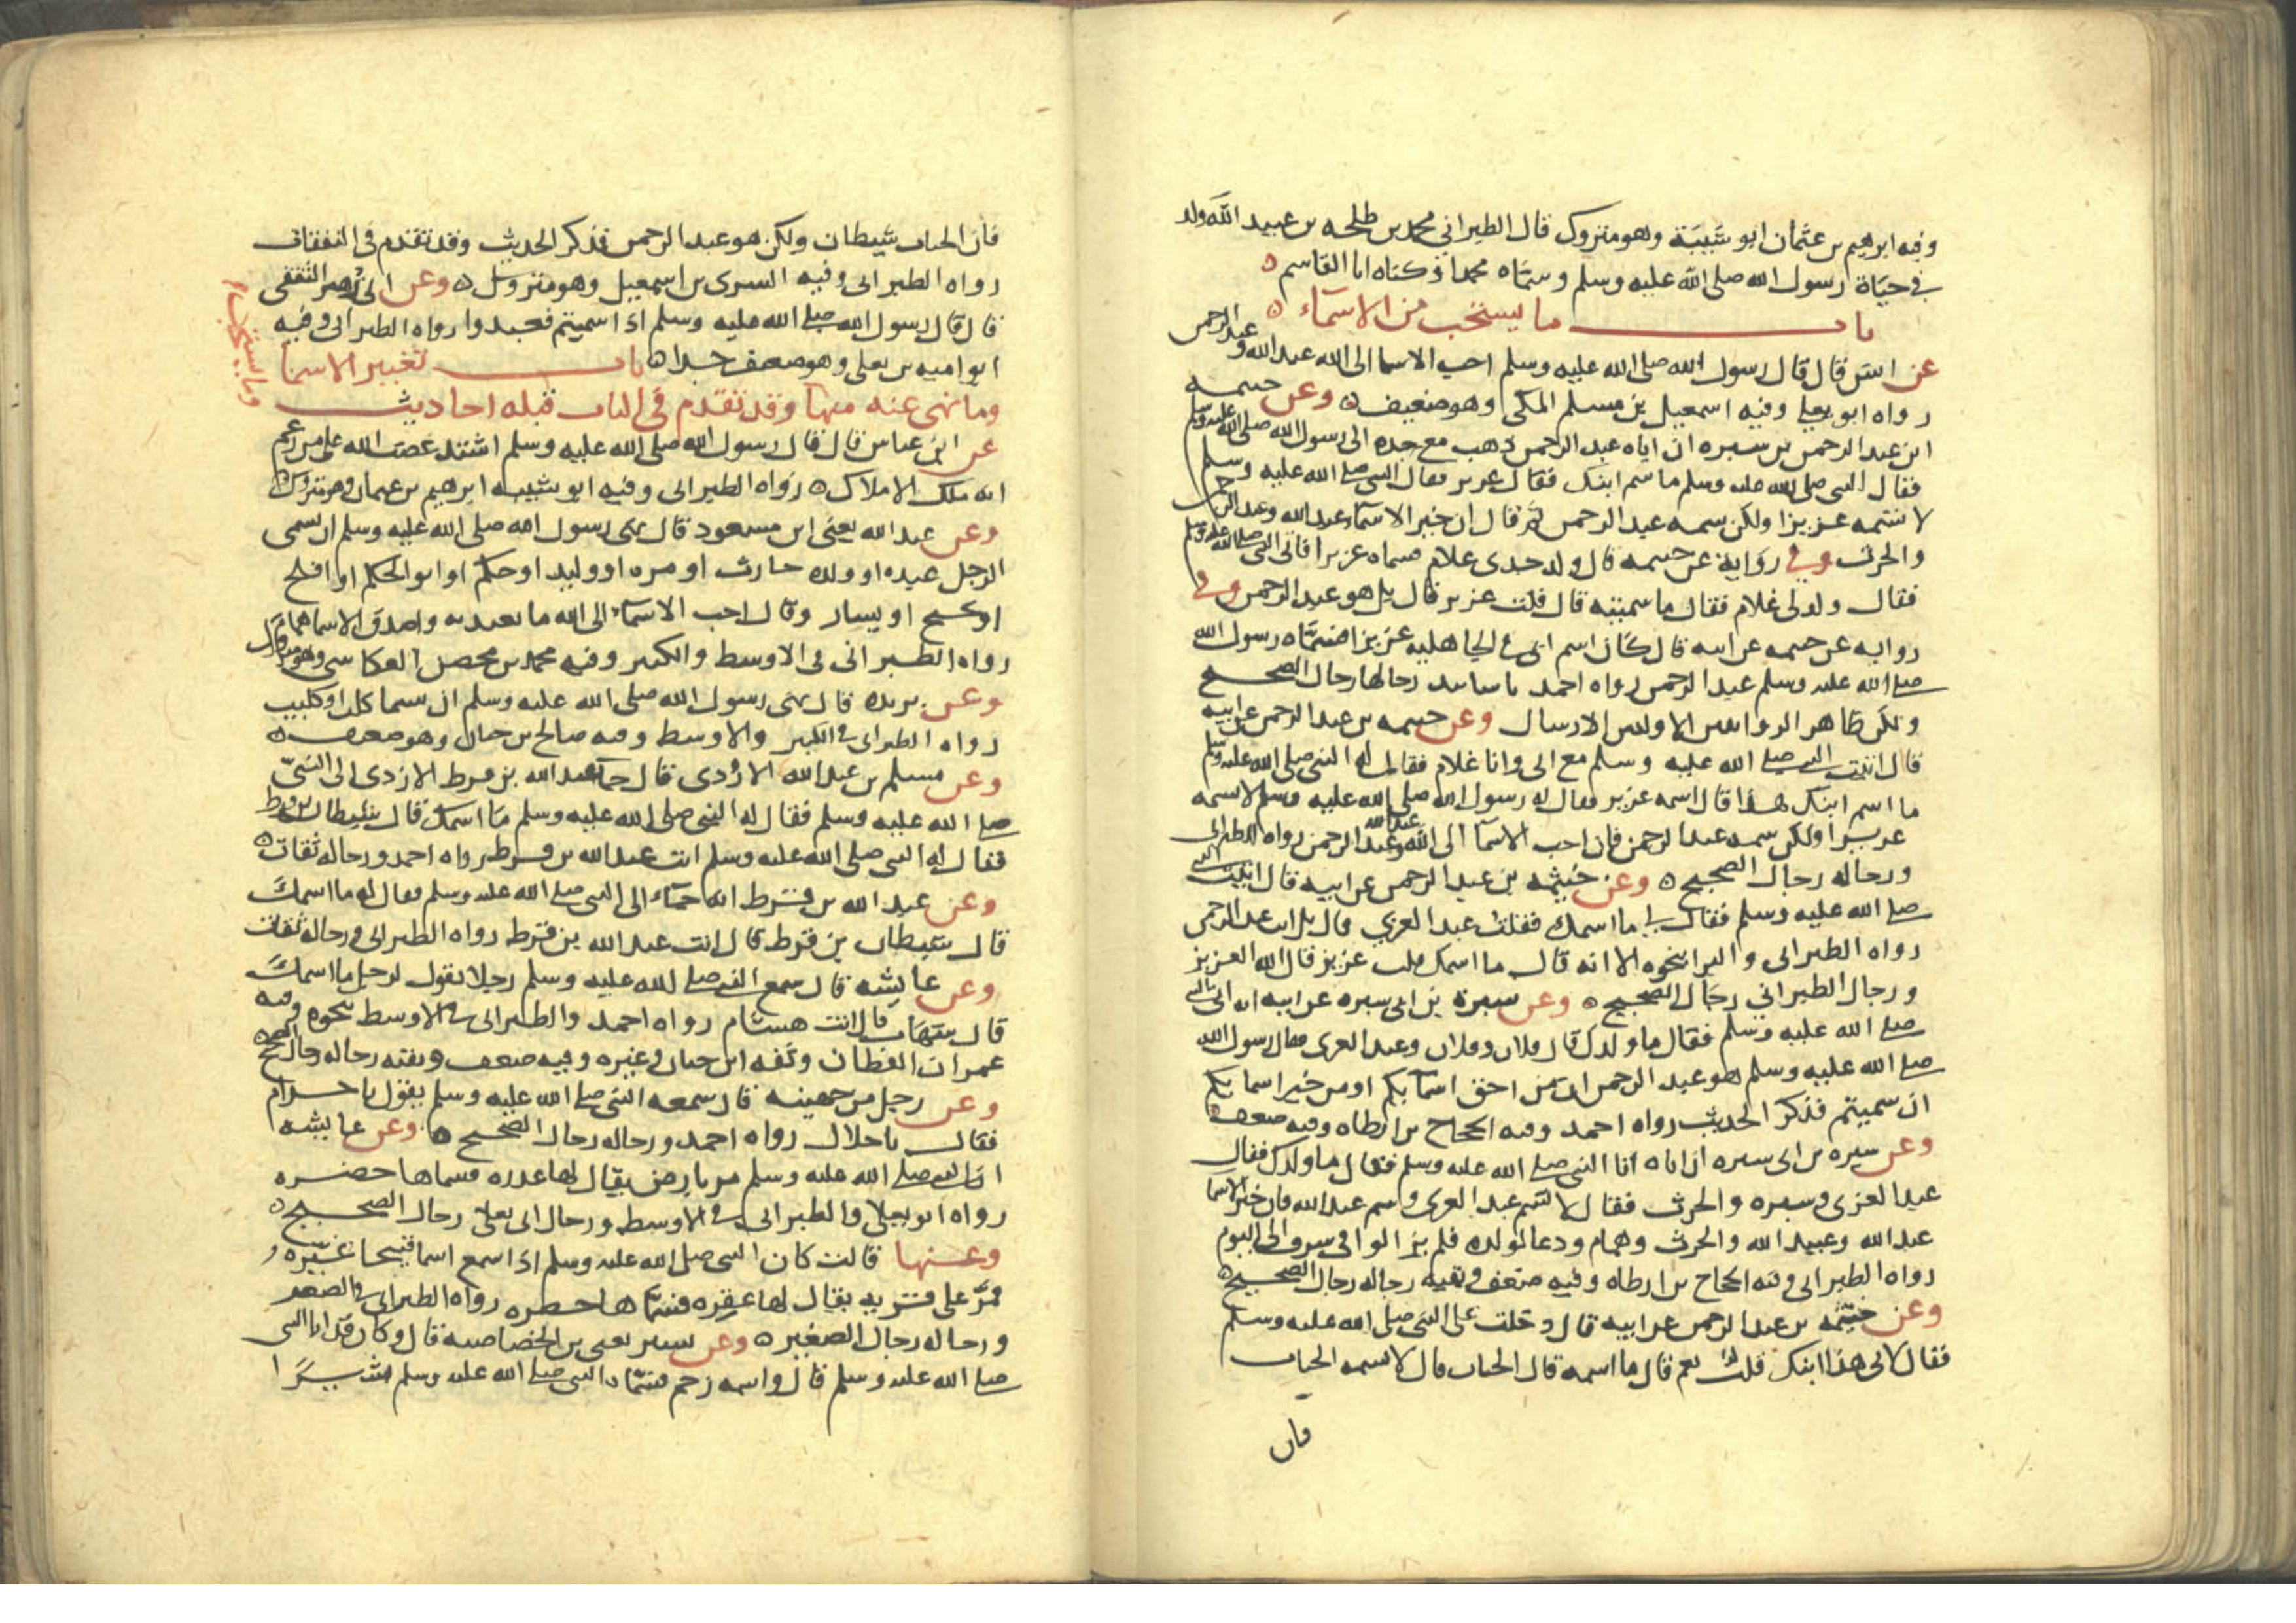 وفيه ابرهيم بن عثمان ابو شيبة وهو متروك قال الطبراني محمد بن طلحه بن عبيد الله ولد
في حياة رسول الله صلى الله عليه وسلم وسماه محمدا وكناه ابا القاسم
باب ما يستحب من الاسماء
عن انس قال قال رسول الله صلى الله عليه وسلم احب الاسما الى الله عبد الله و عبد الرحمن
رواه ابو يعلى وفيه اسمعيل بن مسلم المكي وهو ضعيف وعن خيثمه
ابن عبد الرحمن بن سبره ان اباه عبد الرحمن ذهب مع جده الى رسول الله صلى الله عليه وسلم
فقال النبي صلى الله عليه وسلم ما اسم ابنك فقال عزيز فقال النبي صلى الله عليه وسلم
لا تسمه عزيزا ولكن سمه عبد الرحمن ثم قال ان خير الاسماء عبد الله وعبد الرحمن
والحرث وفي رواية عن خيثمه قال ولد جدي غلام فسماه عزيرا فاتى النبي صلى الله عليه وسلم
فقال ولد لي غلام فقال ما سميته قال قلت عزيز قال بل هو عبد الرحمن وفي
روايه عن خيثمه عن ابيه قال كان اسم ابي في الجاهليه عزيزا فسماه رسول الله
صلى الله عليه وسلم عبد الرحمن رواه احمد باسانيد رجالها رجال الصحيح
ولكن ظاهر الروايتين الاولتين الارسال وعن خيثمه بن عبد الرحمن عن ابيه
قال اتيت النبي صلى الله عليه وسلم مع ابي وانا غلام فقال له النبي صلى الله عليه وسلم
ما اسم ابنك هذا قال اسمه عزيز فقال له رسول الله صلى الله عليه وسلم لا تسمه
عزيزا ولكن سمه عبد الرحمن فان احب الاسما الى الله عبد الله وعبد الرحمن رواه الطبراني
ورجاله رجال الصحيح وعن خيثمه بن عبد الرحمن عن ابيه قال اتيت النبي
صلى الله عليه وسلم فقال لي ما اسمك فقلت عبد العزي قال بل انت عبد الرحمن
رواه الطبراني والبزار بنحوه الا انه قال ما اسمك قلت عزيز قال الله العزيز
ورجال الطبراني رجال الصحيح وعن سبرة بن ابي سبره عن ابيه انه اتى النبي
صلى الله عليه وسلم فقال ما ولدك قال فلان وفلان وعبد العزى فقال رسول الله
صلى الله عليه وسلم هو عبد الرحمن ان من احق اسمائكم او من خير اسمايكم
ان سميتم فذكر الحديث رواه احمد وفيه الحجاج بن ارطاه وفيه ضعف
وعن سبره بن ابي سبره ان اباه اتا النبي صلى الله عليه وسلم فقال ما ولدك فقال
عبد العزى وسبره والحرث فقال لا تسم عبد العزى وسم عبد الله فان خير الاسما
عبد الله وعبيد الله والحرث وهمام ودعا لولده فلم يزالوا في شرف الى اليوم
رواه الطبراني وفيه الحجاج بن ارطاه وفيه ضعف وبقيه رجاله رجال الصحيح
وعن خيثمه بن عبد الرحمن عن ابيه قال دخلت على النبي صلى الله عليه وسلم
فقال لابي هذا ابنك قلت نعم قال ما اسمه قال الحباب قال لا تسمه الحباب
فان
فان الحباب شيطان ولكن هو عبد الرحمن فذكر الحديث وقد تقدم في النفقات
رواه الطبراني وفيه السري بن اسمعيل وهو متروك وعن ابي زهير الثقفي
قال قال رسول الله صلى الله عليه وسلم اذا سميتم فعبدوا رواه الطبراني وفيه
ابو اميه بن يعلى وهو ضعيف جدا باب تغيير الاسما
وما يستحب
وما نهى عنه منها وقد تقدم في الباب قبله احاديث
عن ابن عباس قال قال رسول الله صلى الله عليه وسلم اشتد غضب الله على من زعم
انه ملك الاملاك رواه الطبراني وفيه ابو شيبه ابرهيم بن عثمان وهو متروك
وعن عبد الله يعني ابن مسعود قال نهى رسول الله صلى الله عليه وسلم ان يسمى
الرجل عبده او ولده حارث او مره او وليد او حكم او ابو الحكم او افلح
او نجيح او يسار وقال احب الاسماء الى الله ما تعبد به واصدق الاسما همام
رواه الطبراني في الاوسط والكبير وفيه محمد بن محصن العكاشي وهو متروك
وعن بريده قال نهى رسول الله صلى الله عليه وسلم ان يسما كلب او كليب
رواه الطبراني في الكبير والاوسط وفيه صالح بن حيان وهو ضعيف
وعن مسلم بن عبد الله الازدي قال جا عبد الله بن قرط الازدي الى النبي
صلى الله عليه وسلم فقال له النبي صلى الله عليه وسلم ما اسمك قال شيطان بن قرط
فقال له النبي صلى الله عليه وسلم انت عبد الله بن قرط رواه احمد ورجاله ثقات
وعن عبد الله بن قرط انه جاء الى النبي صلى الله عليه وسلم فقال له ما اسمك
قال شيطان بن قرط قال انت عبد الله بن قرط رواه الطبراني ورجاله ثقات
وعن عايشه قال سمع النبي صلى الله عليه وسلم رجلا يقول لرجل ما اسمك
قال شهاب قال انت هشام رواه احمد والطبراني في الاوسط بنحوه وفيه
عمران القطان وثقه ابن حبان وغيره وفيه ضعف وبقيه رجاله رجال الصحيح
وعن رجل من جهينه قال سمعه النبي صلى الله عليه وسلم يقول يا حرام
فقال يا حلال رواه احمد ورجاله رجال الصحيح وعن عايشه
ان النبي صلى الله عليه وسلم مر بارض يقال لها غدره فسماها خضره
رواه ابو يعلى والطبراني في الاوسط ورجال ابي يعلى رجال الصحيح
وعنها قالت كان النبي صلى الله عليه وسلم اذا سمع اسما قبيحا غيره
فمر على قريه يقال لها عفره فسماها خضره رواه الطبراني في الصغير
ورجاله رجال الصحيح وعن بشير يعني بن الخصاصيه قال وكان قد اتا النبي
صلى الله عليه وسلم قال واسمه زحم فسماه النبي صلى الله عليه وسلم بشيرا